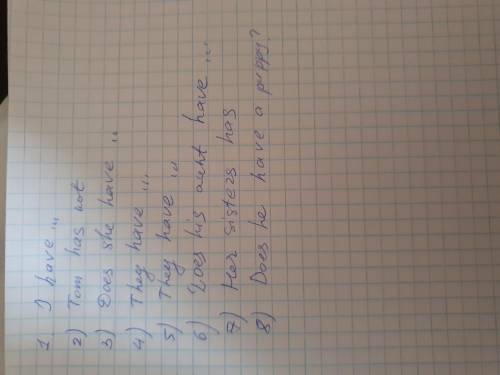 1. I have ...
2) Tom has not
3) Does she have ...
4) They have ...
5) They have ...
6) Does his aunt have ...
7) Her sisters has
8) Does he have a puppy?